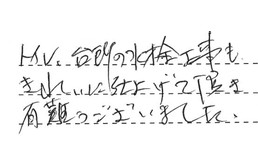 トイレ、台所の水栓工事も
きれいに仕上げて頂き
有難うございました。